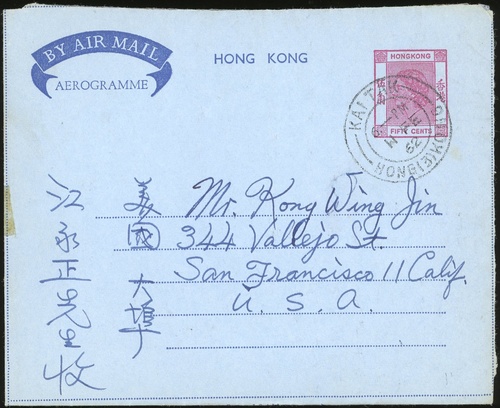 BY AIR MAIL
AEROGRAMME
HONG KONG
HONGKONG
FIFTY CENTS
KAI TAK
HONG KONG
62
Mr. Kong Wing Jin
344 Vallejo St.
San Francisco 11 Calif.
U. S. A.
美國
大埠
江永正先生收